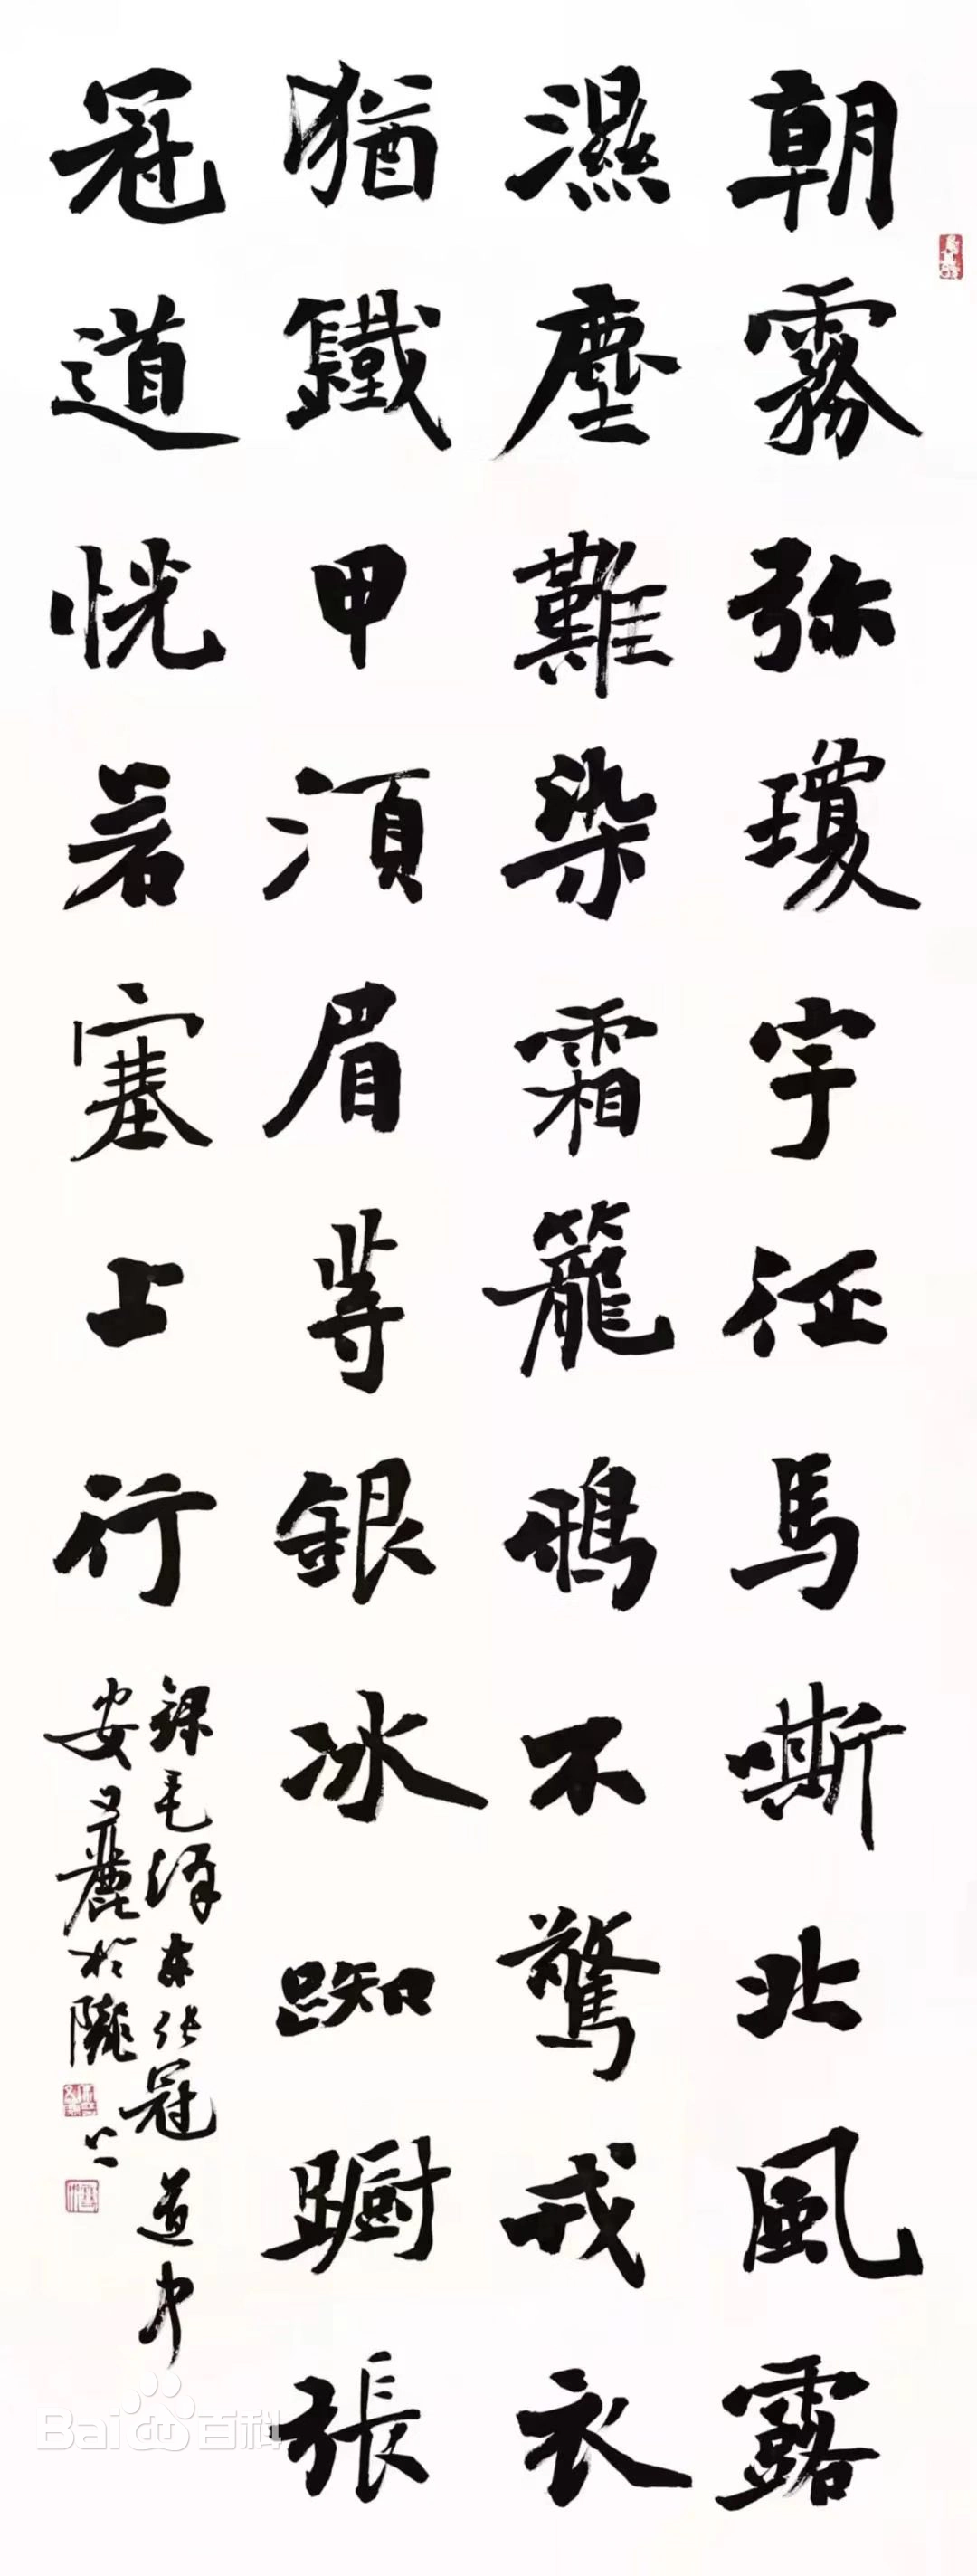 朝霧弥瓊宇征馬嘶北風露
濕塵難染霜籠鴉不驚戎衣
猶鐵甲須眉等銀冰踟躕張
冠道恍若塞上行
錄毛泽东张冠道中
安又麗於隴上
Bai百科